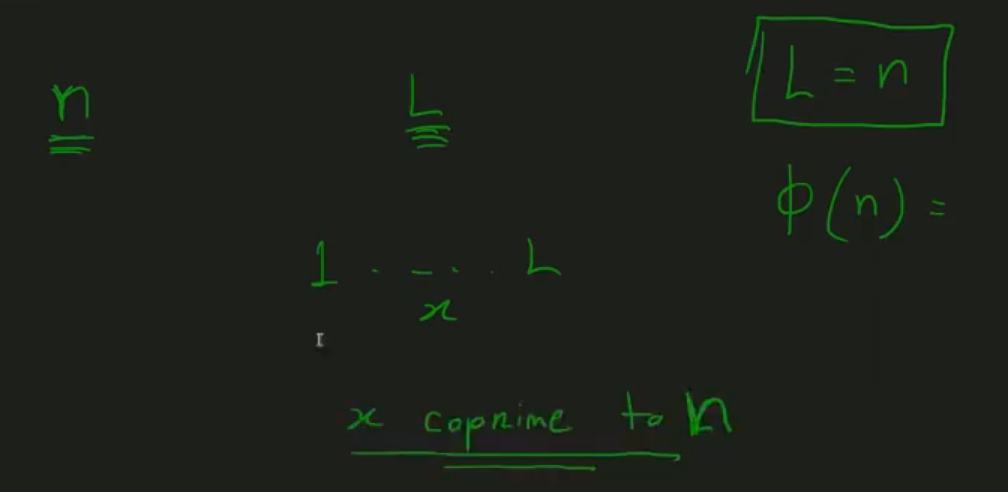 n
L
L = n
φ(n) =
1 . _ . . L
x
x coprime to n